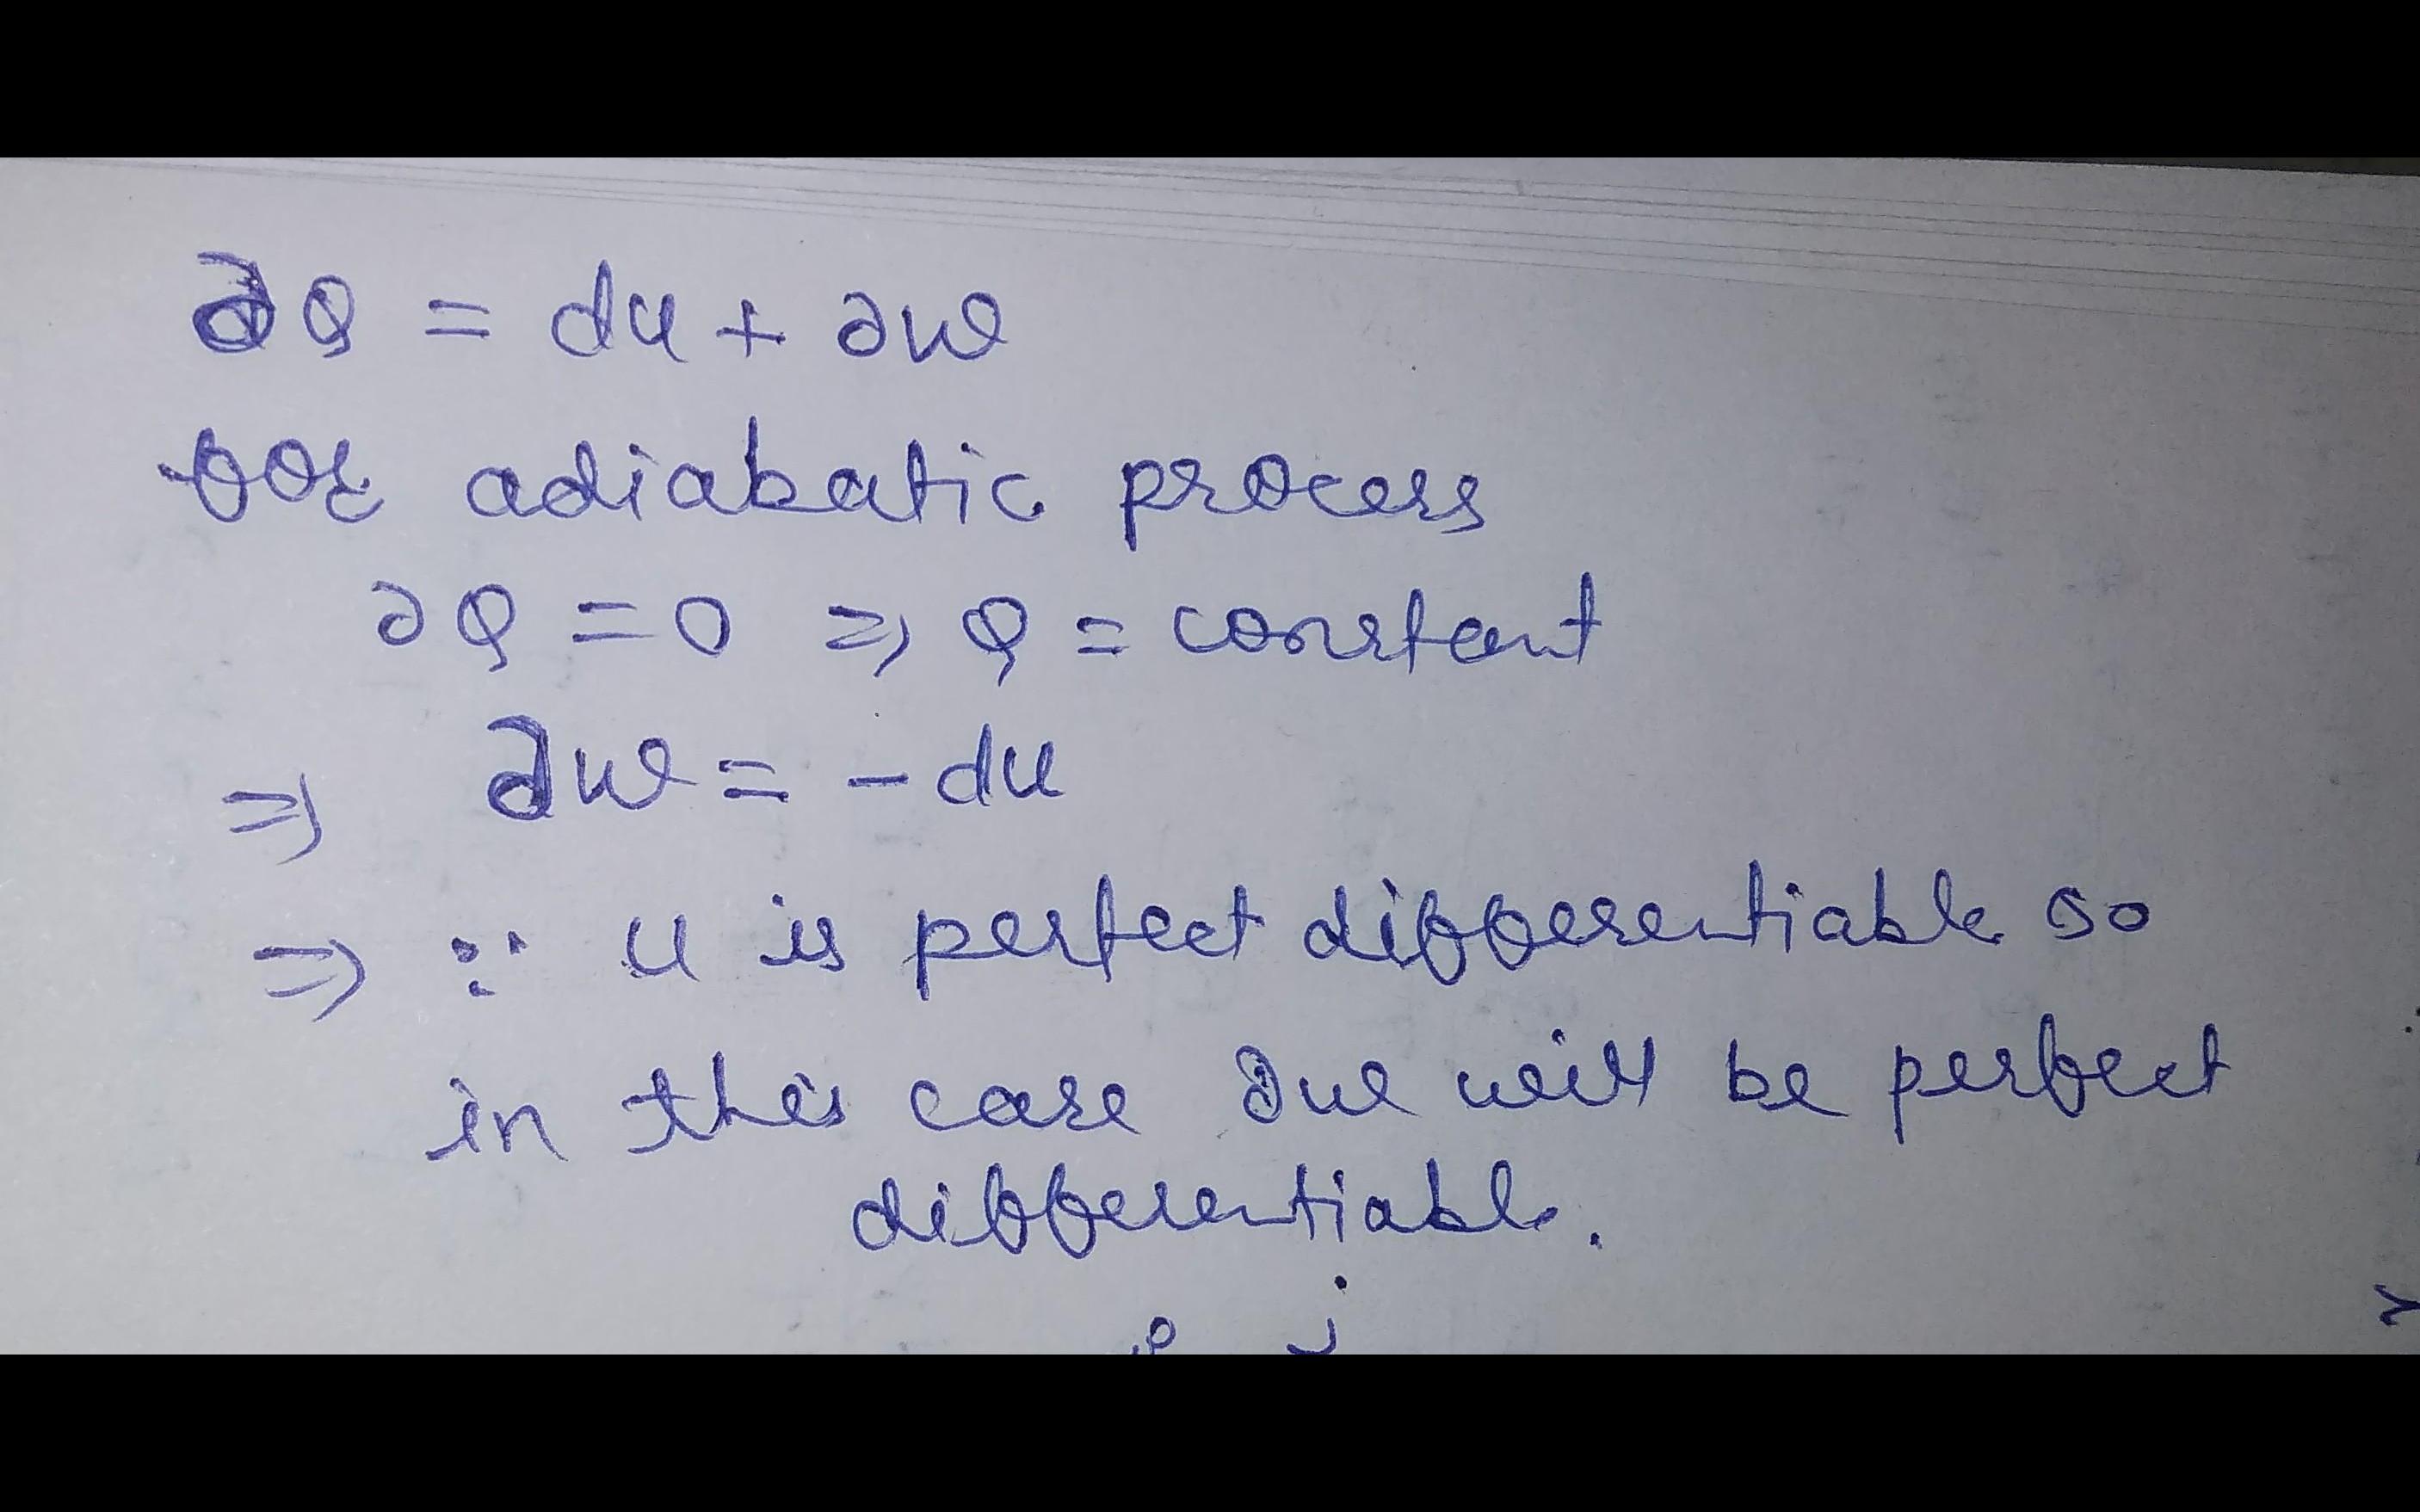 ∂Q = du + ∂w
for adiabatic process
∂Q = 0 ⇒ Q = constant
⇒ ∂w = - du
⇒ ∵ u is perfect differentiable so
in this case ∂w will be perfect
differentiable.